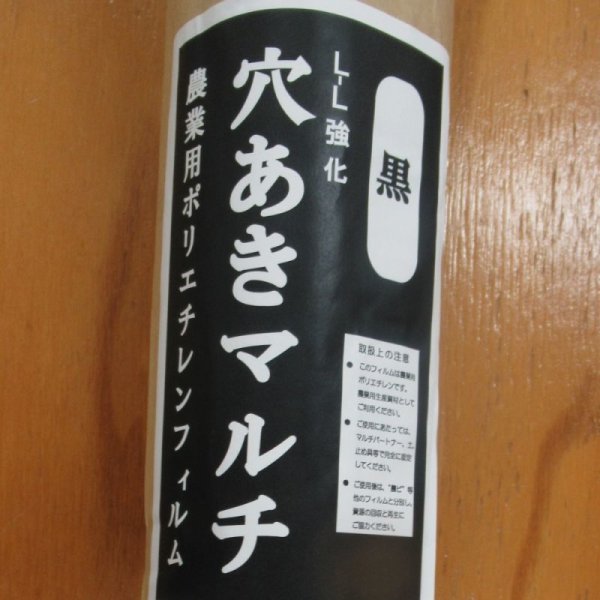 黒
L-L強化
穴あきマルチ
農業用ポリエチレンフィルム
取扱上の注意
● このフィルムは農業用
ポリエチレンです。
農業用生産資材として
ご利用ください。
● ご使用にあたっては、
マルチパートナー、土、
止め具等で完全に固定
してください。
● ご使用後は、"農ビ"等
他のフィルムと分別し、
資源の回収と再生に
ご協力ください。